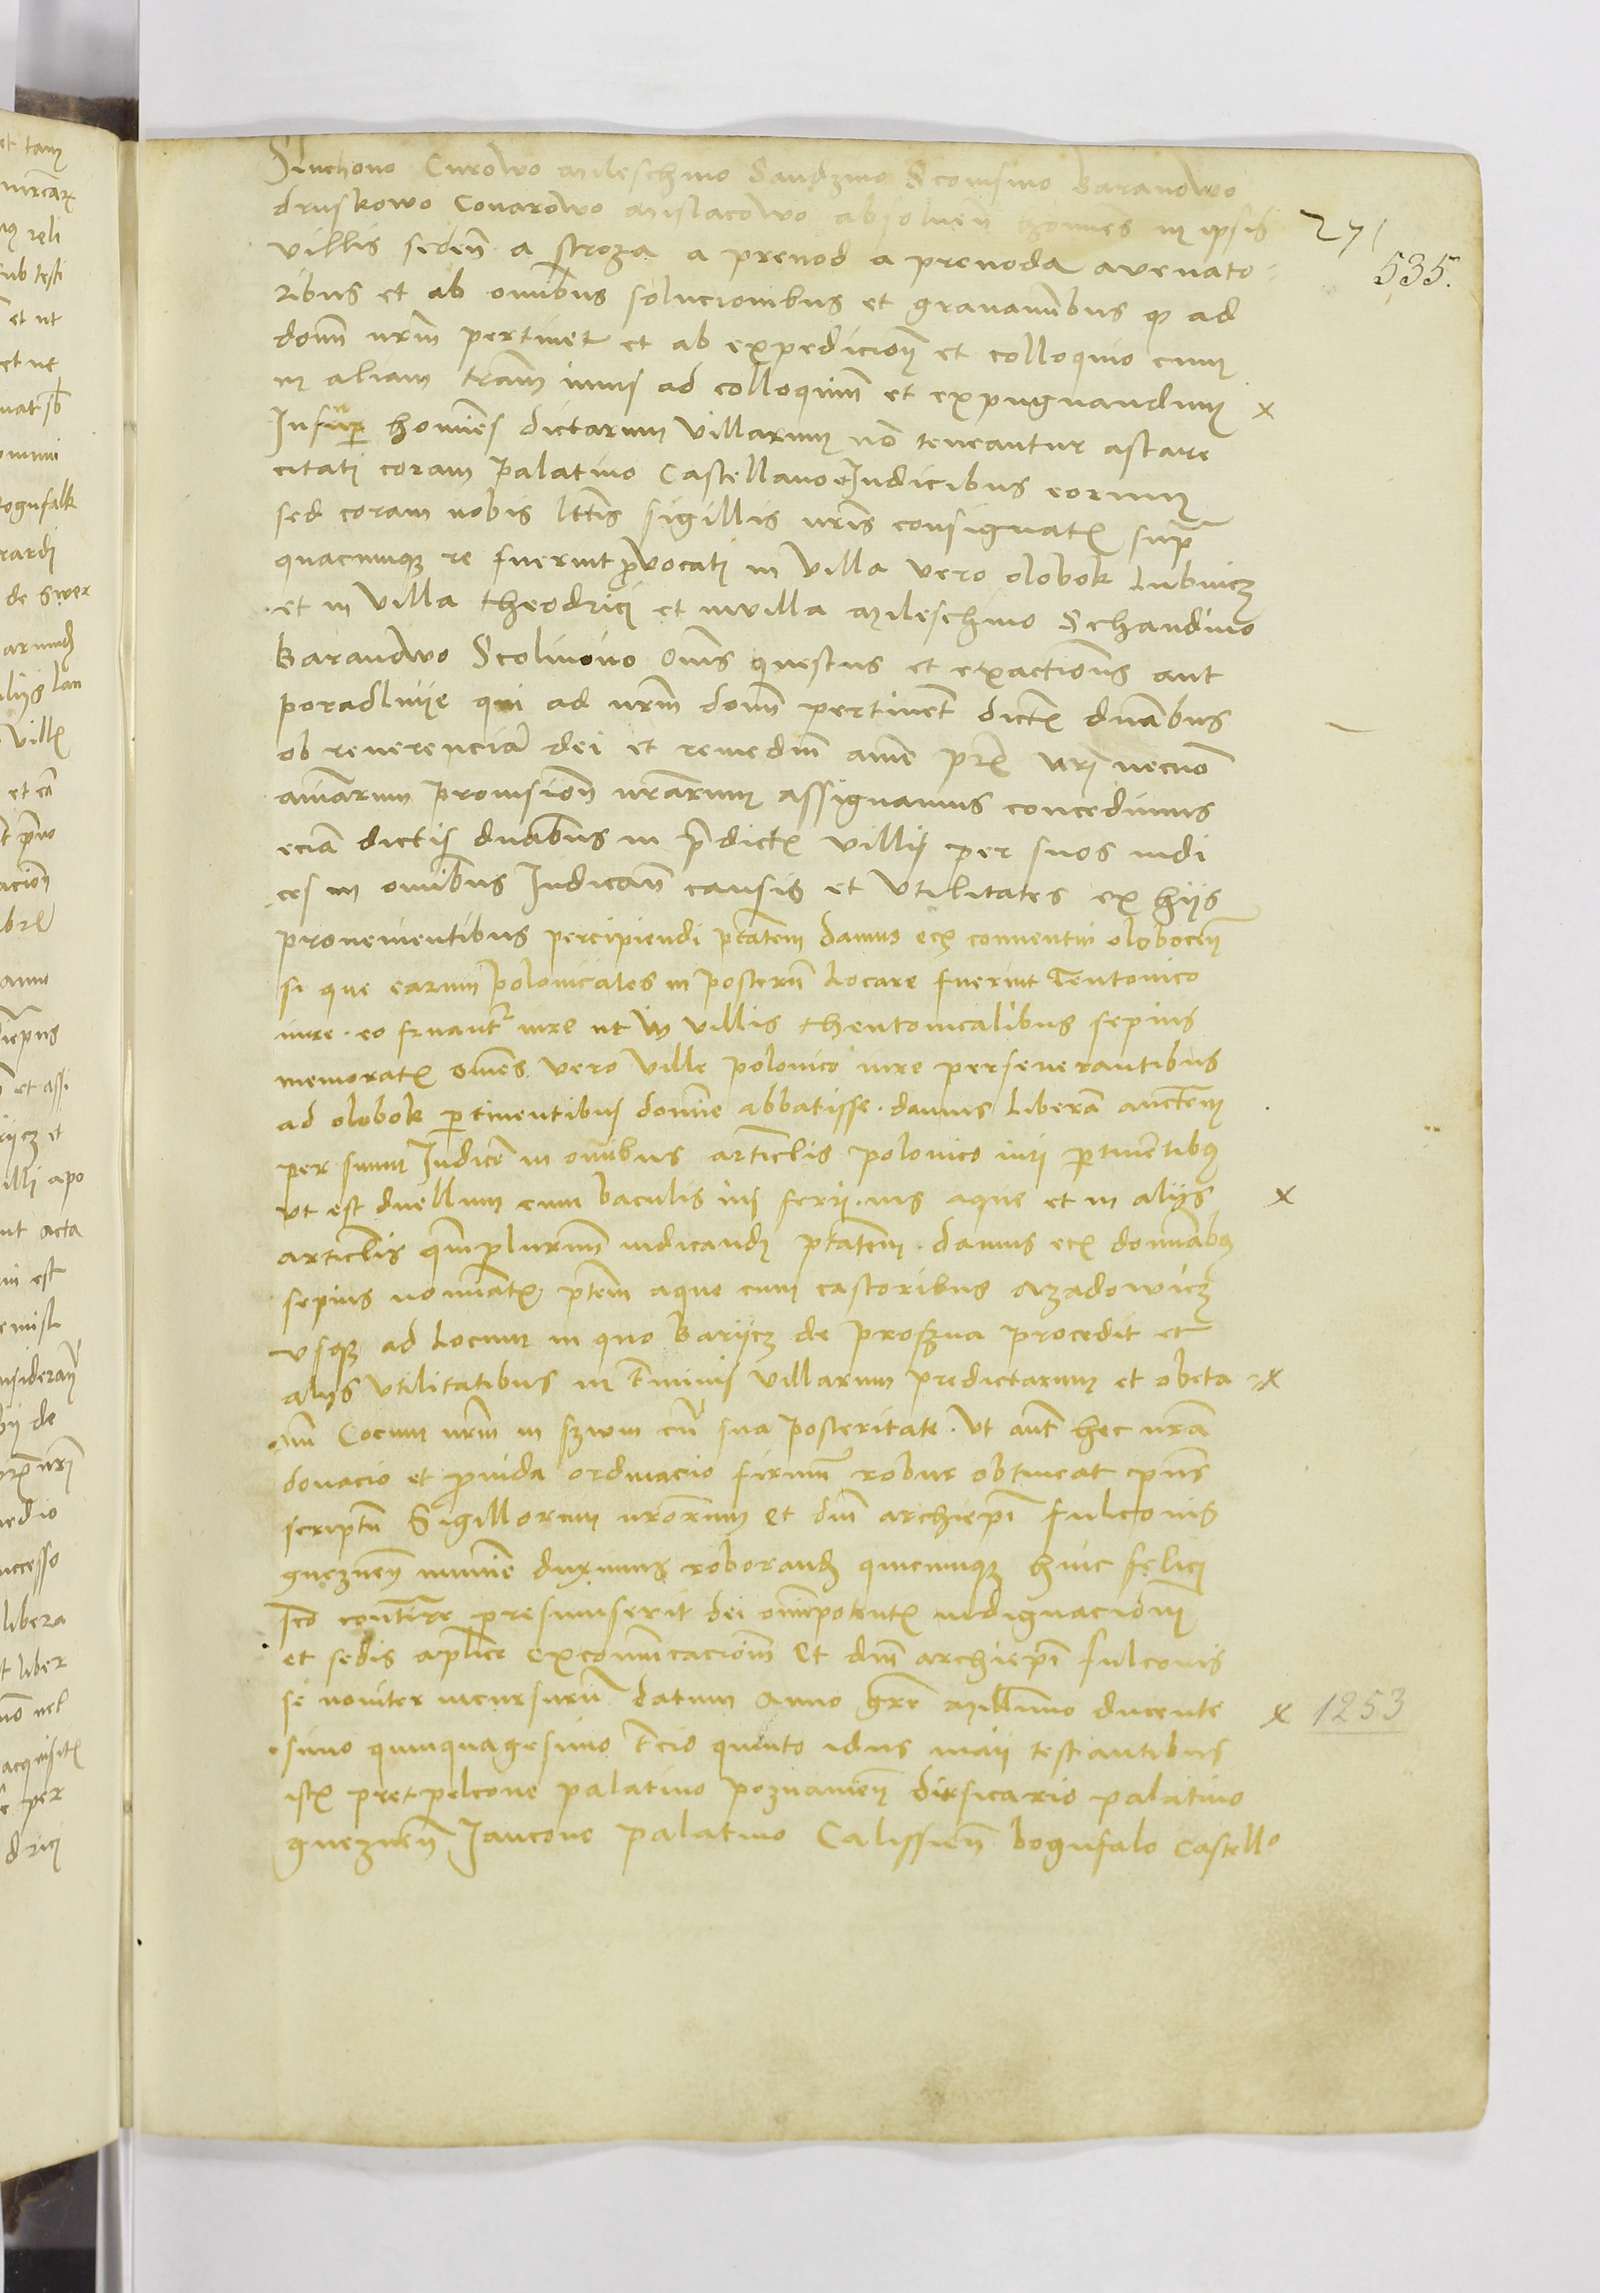 Siuchovo Curowo mileschino Sandzino Scomsino baranowo
druskowo Conarowo mislacowo absoluen homines in ipsis
villis seden a stroza a prevod a prevoda a venato-
ribus et ab omibus solucionibus et gravaminibus q ad
domu nrm pertinet et ab expedicione et colloquio cum
in aliam tram imus ad colloquium et expugnandum x
Insuper homines dictarum villarum no teneantur astare
citati coram palatino Castellano et Iudicibus eorum
sed coram nobis lttis sigillis nris consignatis sup
quacunque re fuerint provocati in villa vero olobok lubnicz
et in villa theodrici et in villa mileschino Schandino
baranowo Scolmovo omnis questus et exactionis aut
poradlniie qui ad nrm domu pertinent dictis dnabus
ob reverencia dei et remediu anime pris nri necno
animarum provision nrarum assignamus concedimus
ecia dictis dnabus in predictis villis per suos iudi
ces in omibus Iudican causis et utilitates ex hiis
provenientibus percipiendi ptatem damus eciam conventui olobocen
si que earum polonicales in posteru locare fuerint Teutonico
iure. eo fruant iure ut in villis theutonicalibus sepius
memoratis omnes vero ville polonico iure perseverantibus
ad olobok pertinentibus domine abbatisse. damus libera auctem
per suum Iudice in omibus articlis polonico iuri pertinentibus
ut est duellum cum baculis ius ferri. ius aque et in aliis x
articlis qmplurimu iudicandi ptatem. damus eciam dominabus
sepius nominatis ptem aque cum castoribus Azadowicz
usque ad locum in quo bariicz de proszna procedit et
aliis utilitatibus in terminis villarum predictarum et obeta x
nu Cocum nrm in servum cu sua posteritate. ut aut hec nra
donacio et provida ordinacio firmum robur obtineat pns
scriptu Sigillorum nrorum et dni archiepi fulconis
gneznen munime duximus roborand quicunque huic felici
sco contraire presumserit dei omipotentis indignacionem
et sedis aplice excomunicacionem et dni archiepi fulconis
se noviter incursuru datum anno gre millimo ducente x 1253
simo quinquagesimo tcio quinto idus maii testantibus
istis pretpelcone palatino poznanien dirsicario palatino
gneznen Iancone palatino Calissien bogufalo Castello
271
535.